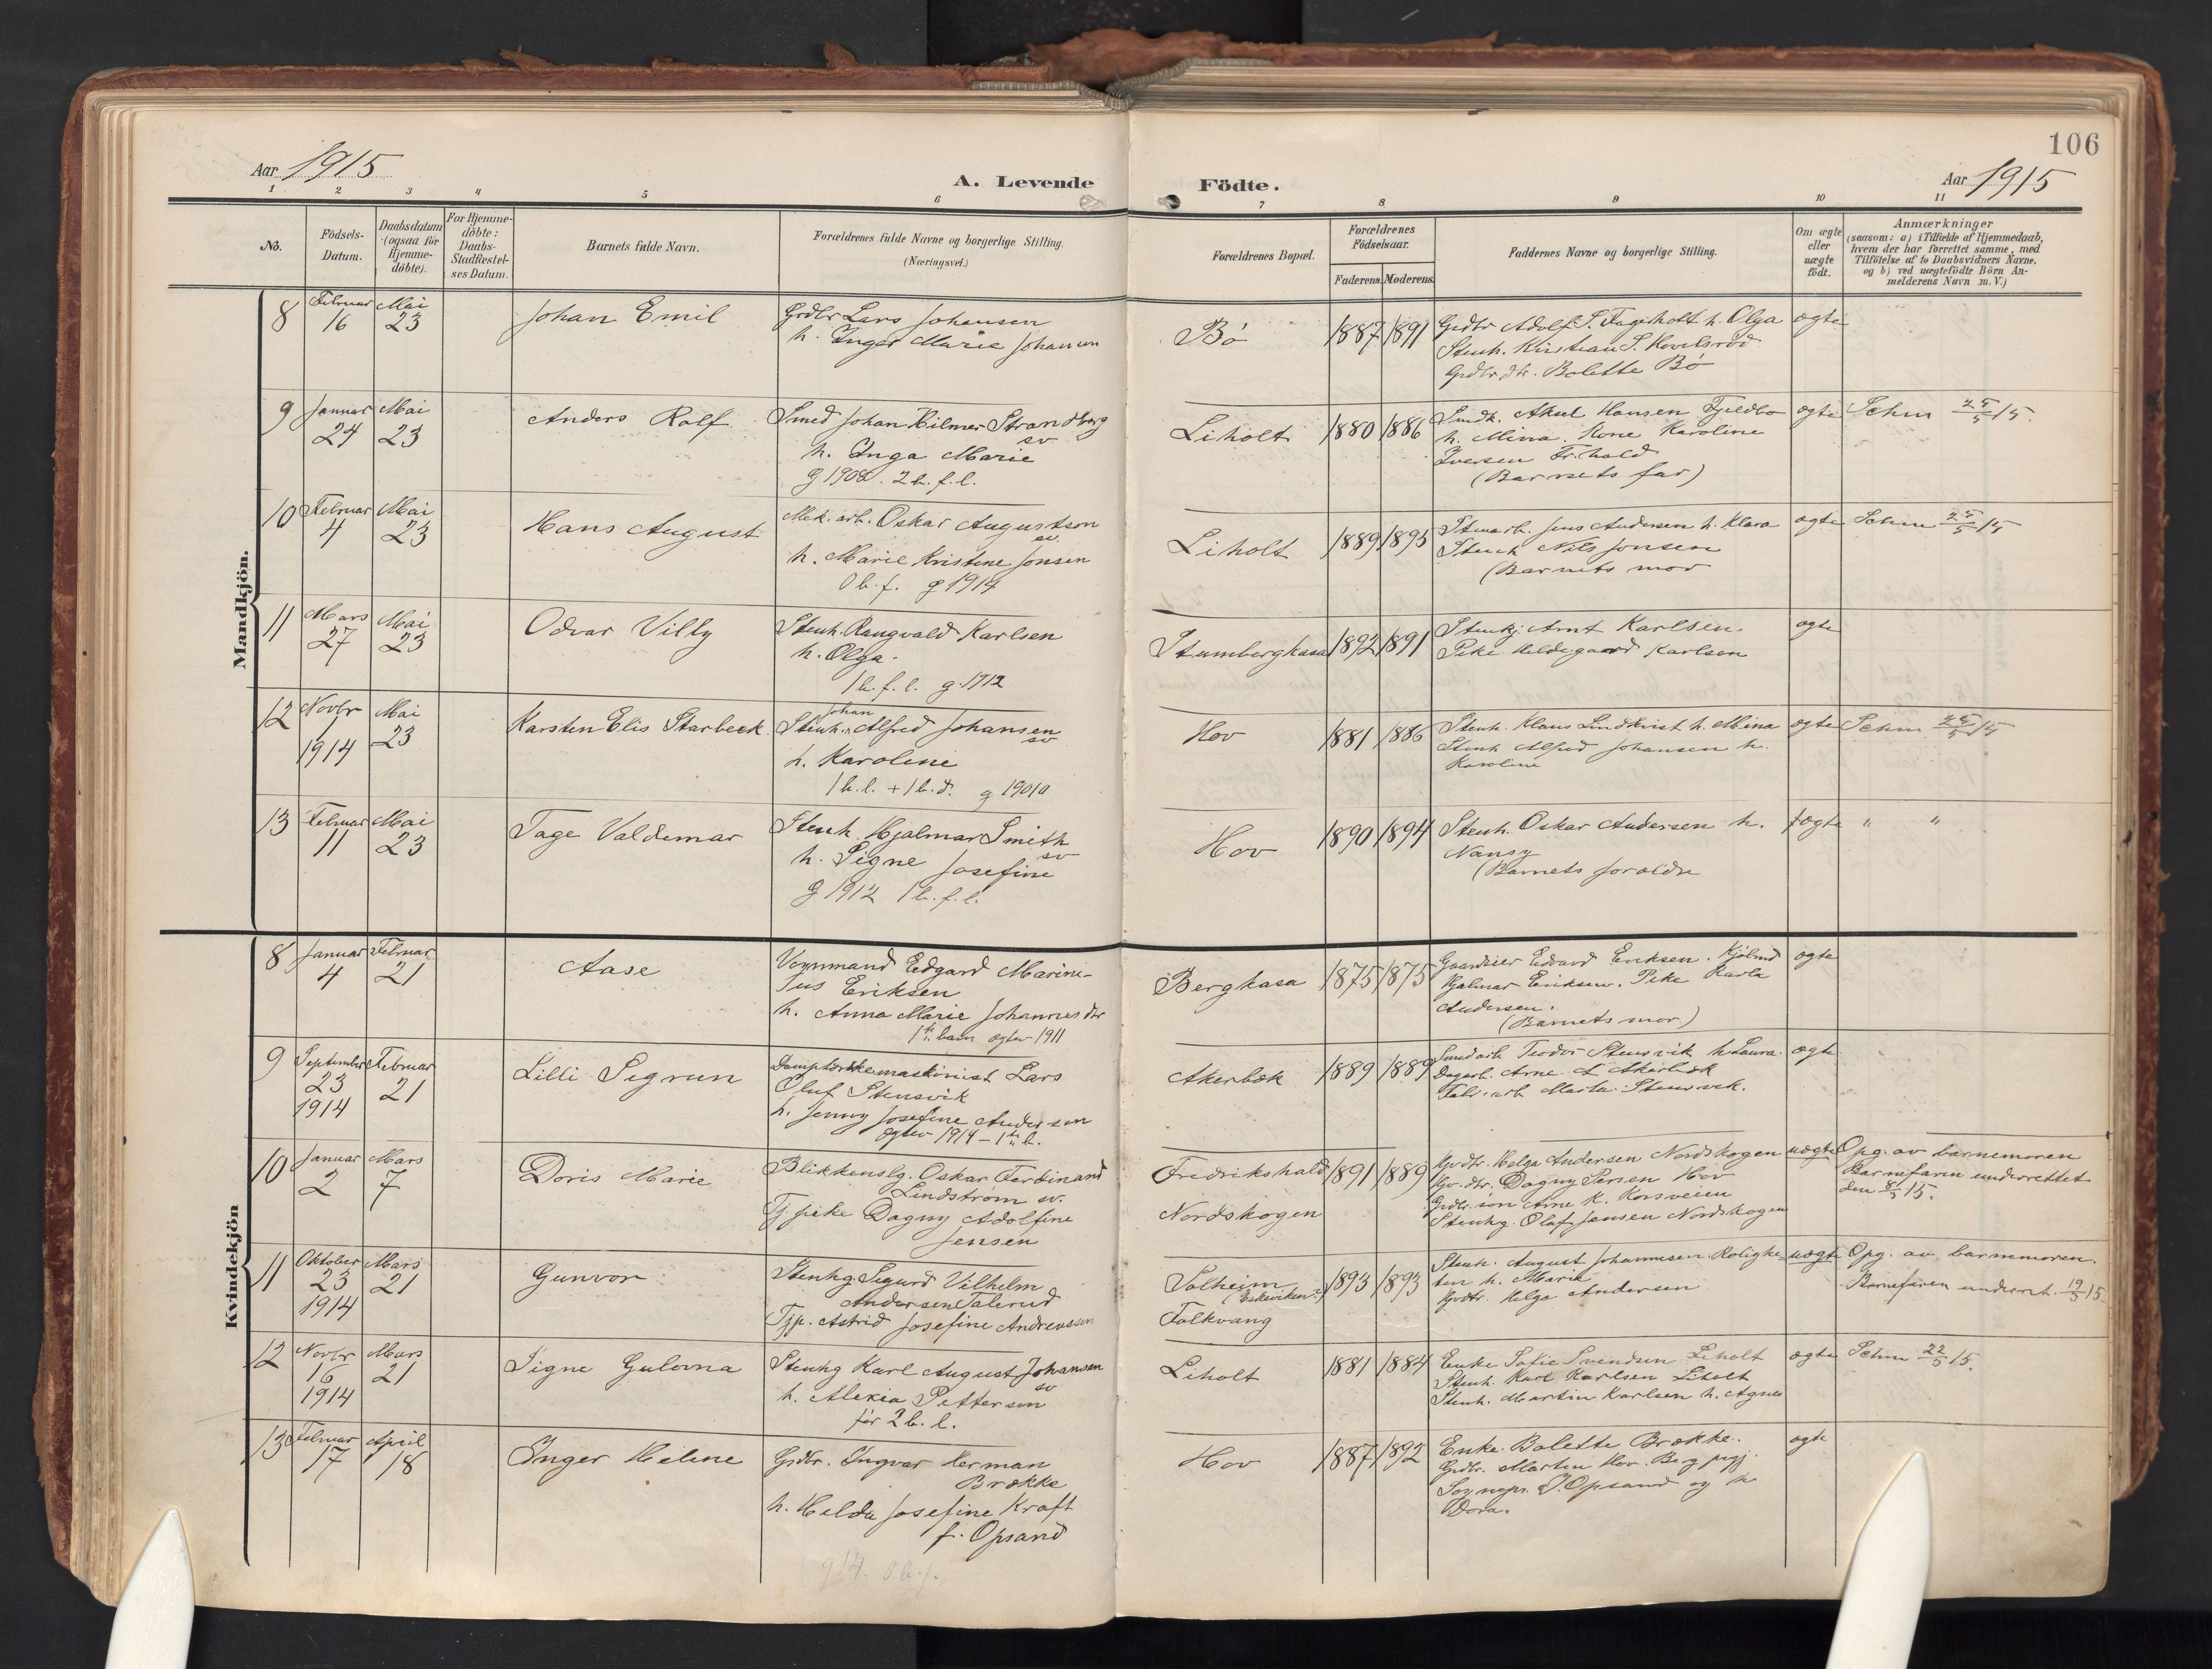 106
Aar 1915
A. Levende
Födte.
Aar 1915
1 2 3 4 5 6 7 8 9 10 11
No.
Födsels-
Datum.
Daabsdatum
(ogsaa for
Hjemme-
döbte).
For Hjemme-
döbte:
Daabs-
Stadfestel-
ses Datum.
Barnets fulde Navn.
Forældrenes fulde Navne og borgerlige Stilling.
(Næringsvei.)
Forældrenes Bopæl.
Forældrenes
Födselsaar.
Faderens. Moderens.
Faddernes Navne og borgerlige Stilling.
Om ægte
eller
uægte
födt.
Anmærkninger
(saasom: a) i Tilfælde af Hjemmedaab,
hvem der har forrettet samme, med
Tilföielse af to Daabsvidners Navne.
og b) ved uægtefödte Börn An-
melderens Navn m. V.)
Mandkjön.
8
Februar
16
Mai
23
Johan Emil
Grdbr Lars Johansen
h. Inger Marie Johansen
Bö
1887 1891
Grdbr Adolf S. Fagerholt h. Olga
Stenh. Kristian S.
Grdbr. dtr. Bolette Bö
ogte
9
Januar
24
Mai
23
Anders Rolf
Smed Johan Hilmer Strandberg
sv
h. Inga Marie
g 1908. 2 b. f. l.
Liholt
1880 1886
Aksel Hansen Fjeldbo
h. Mina. Kone Karoline
Iversen Fr.hald
(Barnets far)
ogte
Schm 25/5 15.
10
Februar
4
Mai
23
Hans August
Mek. arb. Oskar Augustson
sv.
h. Marie Kristine Jonsen
0 b. f. g 1914
Liholt
1889 1895
Stenarb. Jens Andersen h. Klara
Stenh Nils Jonsen
(Barnets mor
ogte
Schm 25/5 15
11
Mars
27
Mai
23
Odvar Villy
Stenh. Rangvald Karlsen
h. Olga.
1 b. f. l. g. 1912
Stumbergkasa
1892 1891
Stenhj Arnt Karlsen.
Pike Hildegaard Karlsen
ogte
12
Novbr
1
1914
Mai
23
Karsten Elis Starbeck
Johan
Stenh. Alfred Johansen
sv
h. Karoline
1 b. l. + 1 b. d. g 1901
Hov
1881 1886
Stenh. Klaus Lindkvist h. Mina
Stenh Alfred Johansen h.
Karoline
ogte
Schm 25/5 15
13
Februar
11
Mai
23
Tage Valdemar
Stenh. Hjalmar Smith
sv
h. Signe Josefine
g 1912 1 b. f. l.
Hov
1890 1894
Stenh. Oskar Andersen h.
Nansy
(Barnets foroldre
ogte
" "
Kvindekjön
8
Januar
4
Februar
21
Aase
Vognmand Edgard Marini-
us Eriksen
h. Anna Marie Johannesdtr
1ste barn ogtev 1911
Bergkasa
1875 1875
Gaardeier Edvard Eriksen. Kjöbmd
Hjalmar Eriksen. Pike Karla
Andersen.
(Barnets mor)
ogte
9
September
23
1914
Februar
21
Lilli Sigrun
Lars
Oluf Stensvik
h. Jenny Josefine Andersen
ogtev 1914 - 1ste b.
Akerbæk
1889 1889
Smedarb Teodor Stensvik h. Laura.
Dagarb. Arne. L Akerbæk
Fabr. arb Marta Stensvik.
ogte
10
Januar
2
Mars
7
Doris Marie
Blikkenslg. Oskar Ferdinand
Lindström sv.
Tj. pike Dagny Adolfine
Jensen
Fredrikshald
Nordskogen
1891 1889
Grdtr. Helga Andersen Nordskogen
Gr. dtr. Dagny Persen Hov
Grdbr. sön Arne K. Korsveien
Stenhg. Olaf Jensen Nordskogen
uægte
Opg. av barnemoren
Barnefaren underrettet
den 8/3 15.
11
Oktober
23
1914
Mars
21
Gunvor
Stenhg. Sigurd Vilhelm
Andersen Talerud
Tjp. Astrid Josefine Andreassen
Solheim
(Eskeviken?)
Folkvang
1893 1893
Stenh. August Johannesen Rolighe-
ten h. Marie
Grdtr. Helga Andersen
uægte
Opg. av barnemoren.
Barnefaren underret. 19/3 15.
12
Novbr
16
1914
Mars
21
Signe Gulovna
Stenhg Karl August Johansen
sv
h. Alexia Pettersen
før 2 b. l.
Liholt
1881 1884
Enke Sofie Svendsen Liholt
Stenh. Karl Karlsen Liholt
Stenh. Martin Karlsen h. Agnes
ogte
Schm 22/5 15.
13
Februar
17
April
18
Inger Helene
Grdbr. Ingvar Herman
Brække
h. Helda Josefine Kraft
f. Opsand
Hov
1887 1892
Enke. Bolette Brække.
Grdbr. Martin Hov. Berg prgj.
Sognepr. O. Opsand og fr
Dora.
ogte